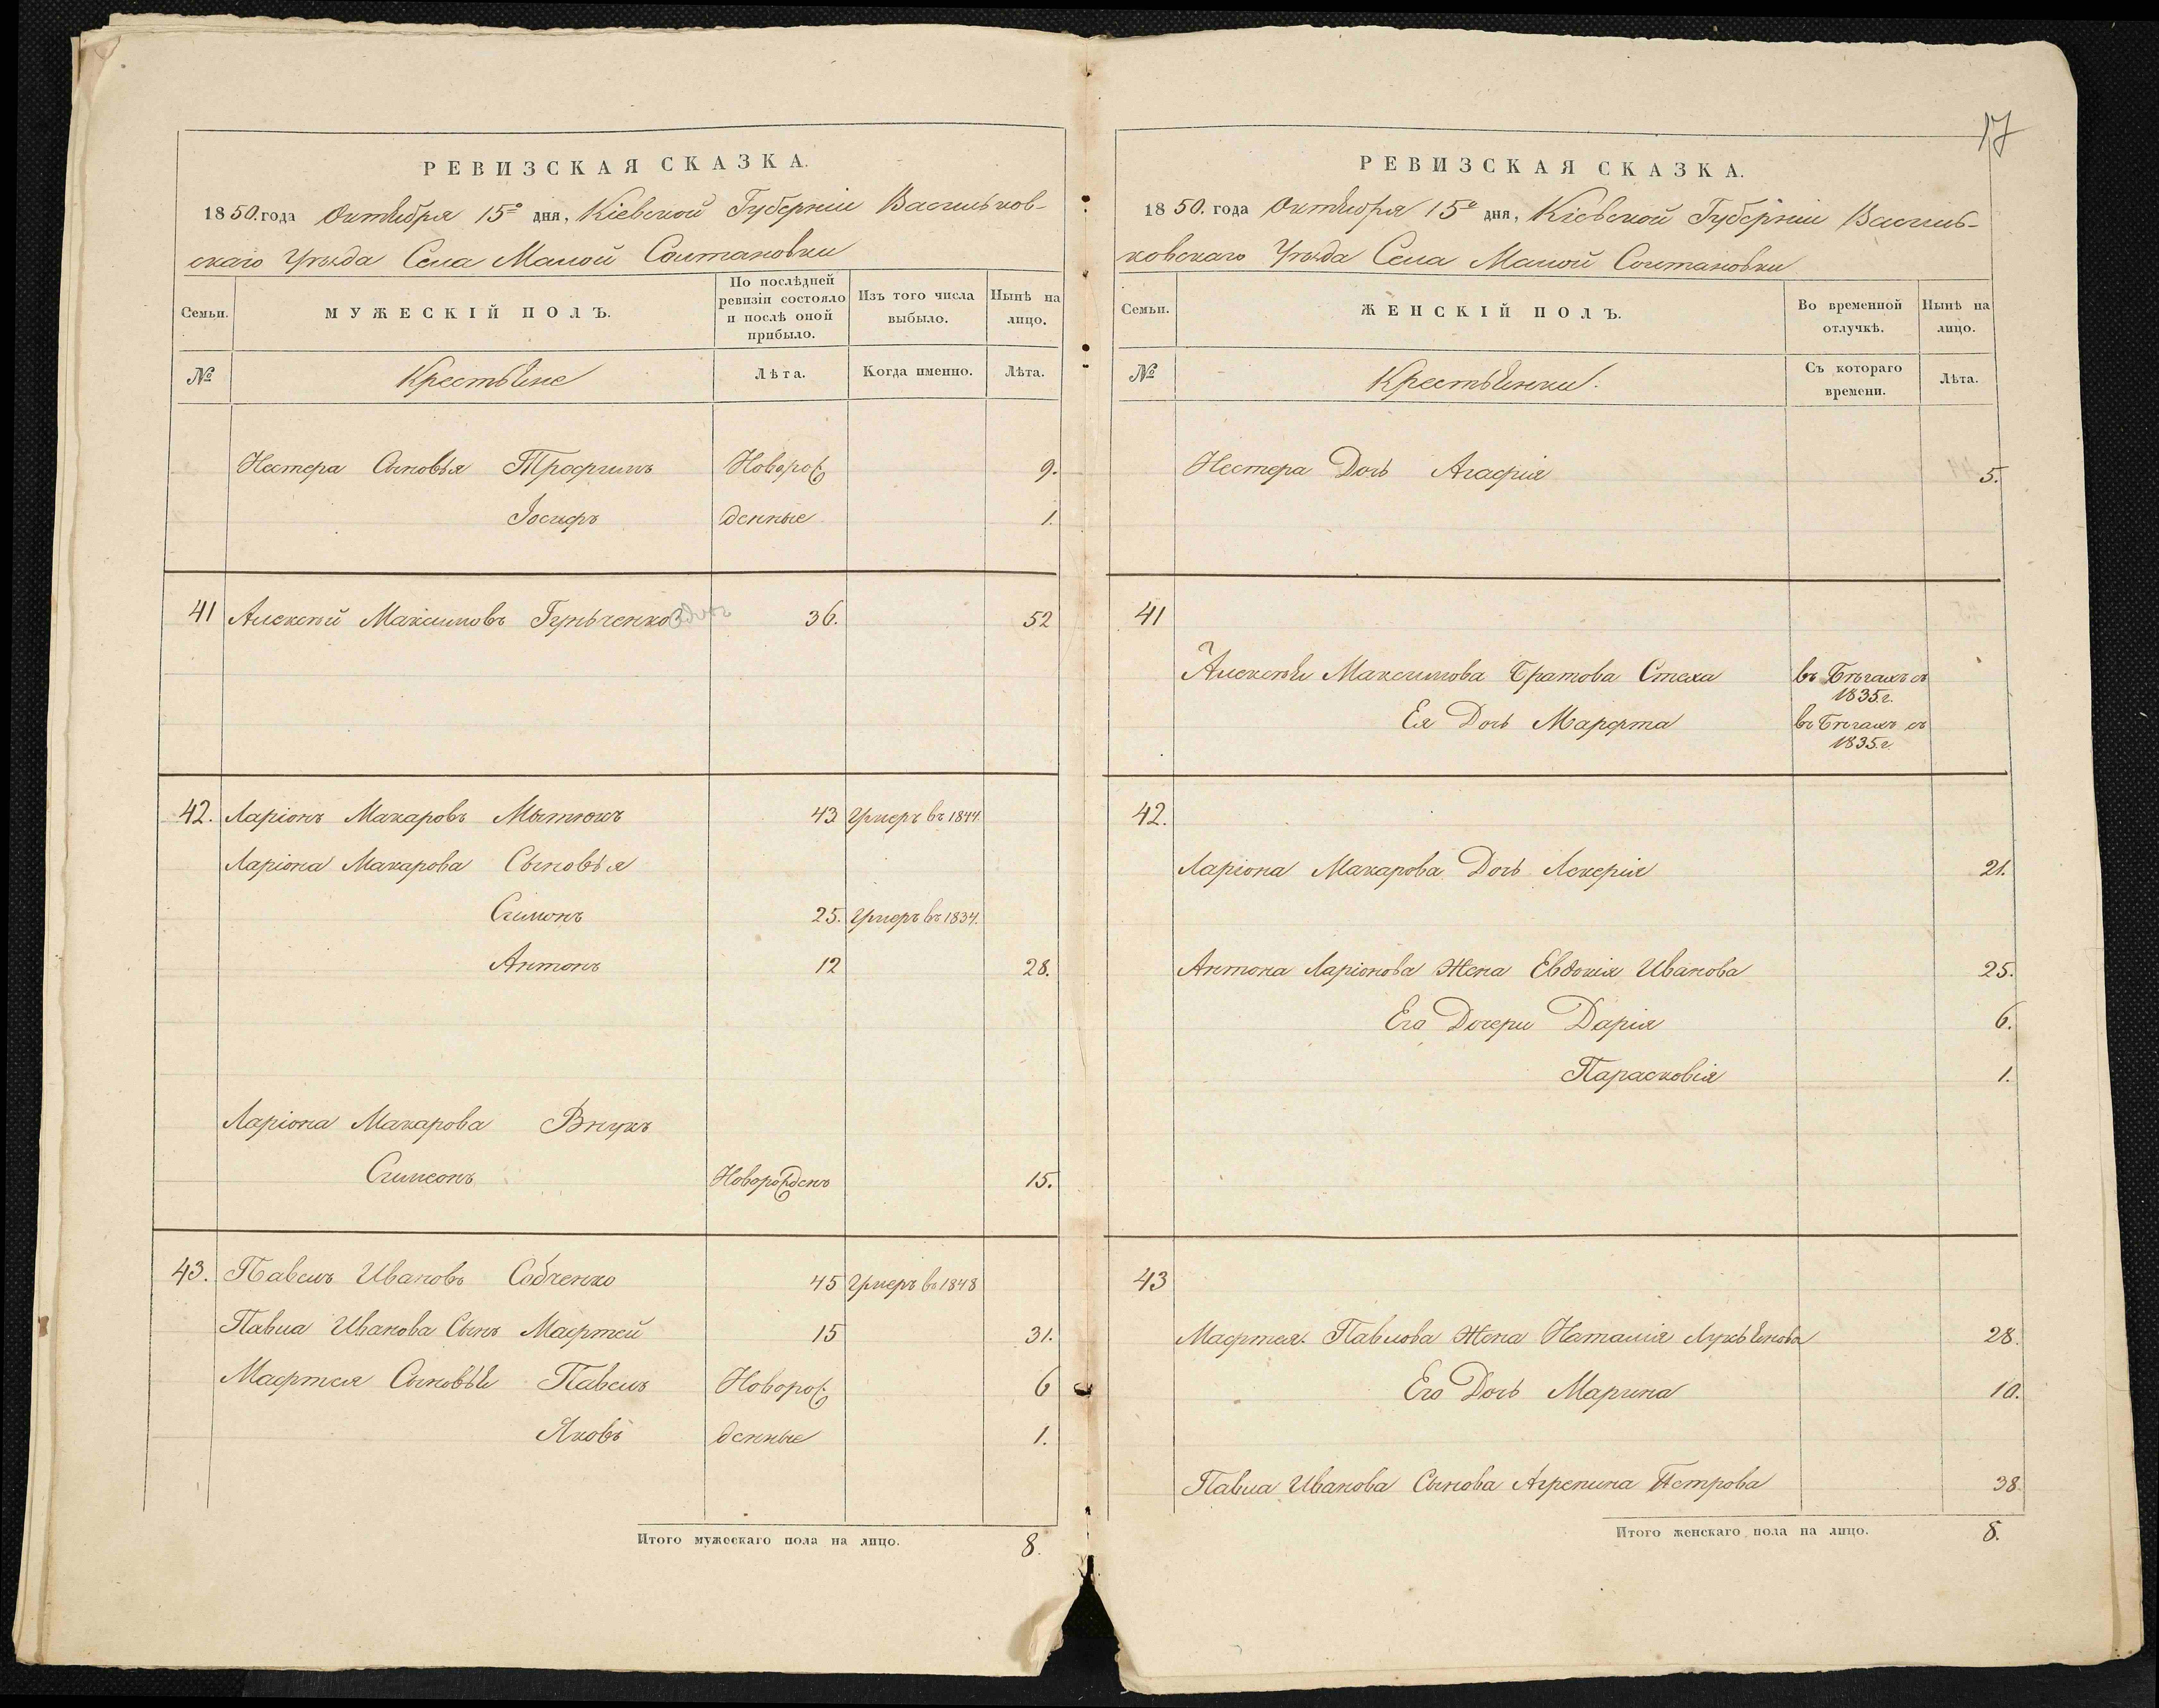 РЕВИЗСКАЯ СКАЗКА.
1850. года Октября 15го дня, Кіевской Губерніи Васильков-
скаго Уѣзда Села Малой Солтановки
Семьи.
МУЖЕСКІЙ ПОЛЪ.
По послѣдней ревизіи состояло и послѣ оной прибыло.
Изъ того числа выбыло.
Нынѣ на лицо.
№
Крестьяне
Лѣта.
Когда именно.
Лѣта.
Нестера Сыновья Трофимъ Новорож 9.
Іосифъ денные 1.
41 Алексѣй Максимовъ 36. 52
42. Ларіонъ Макаровъ Мытюкъ 43 Умеръ въ 1844
Ларіона Макарова Сыновья
Симонъ 25. Умеръ въ 1834.
Антонъ 12 28.
Ларіона Макарова Внукъ
Симеонъ Новорожденъ 15.
43. Павелъ Ивановъ Собченко 45 Умеръ въ 1848
Павла Иванова Сынъ Мафтей 15 31.
Мафтея Сыновья Павелъ Новорож 6
Яковъ денные 1.
Итого мужескаго пола на лицо. 8.
17
РЕВИЗСКАЯ СКАЗКА.
1850. года Октября 15го дня, Кіевской Губерніи Василь-
ковскаго Уѣзда Села Малой Солтановки
Семьи.
ЖЕНСКІЙ ПОЛЪ.
Во временной отлучкѣ.
Нынѣ на лицо.
№
Крестьянки.
Съ котораго времени.
Лѣта.
Нестера Дочь Агафія 5.
41
Алексѣя Максимова Братова Стеха въ Бѣгахъ съ
1835.г.
Ея Дочь Марфта въ Бѣгахъ съ
1835.г.
42.
Ларіона Макарова Дочь Лекерія 21.
Антона Ларіонова Жена Евдокія Иванова 25.
Его Дочери Дарія 6.
Парасковія 1.
43
Мафтея Павлова Жена Наталія Лукьянова 28.
Его Дочь Марина 10.
Павла Иванова Сынова Агрепина Петрова 38
Итого женскаго пола на лицо. 8.